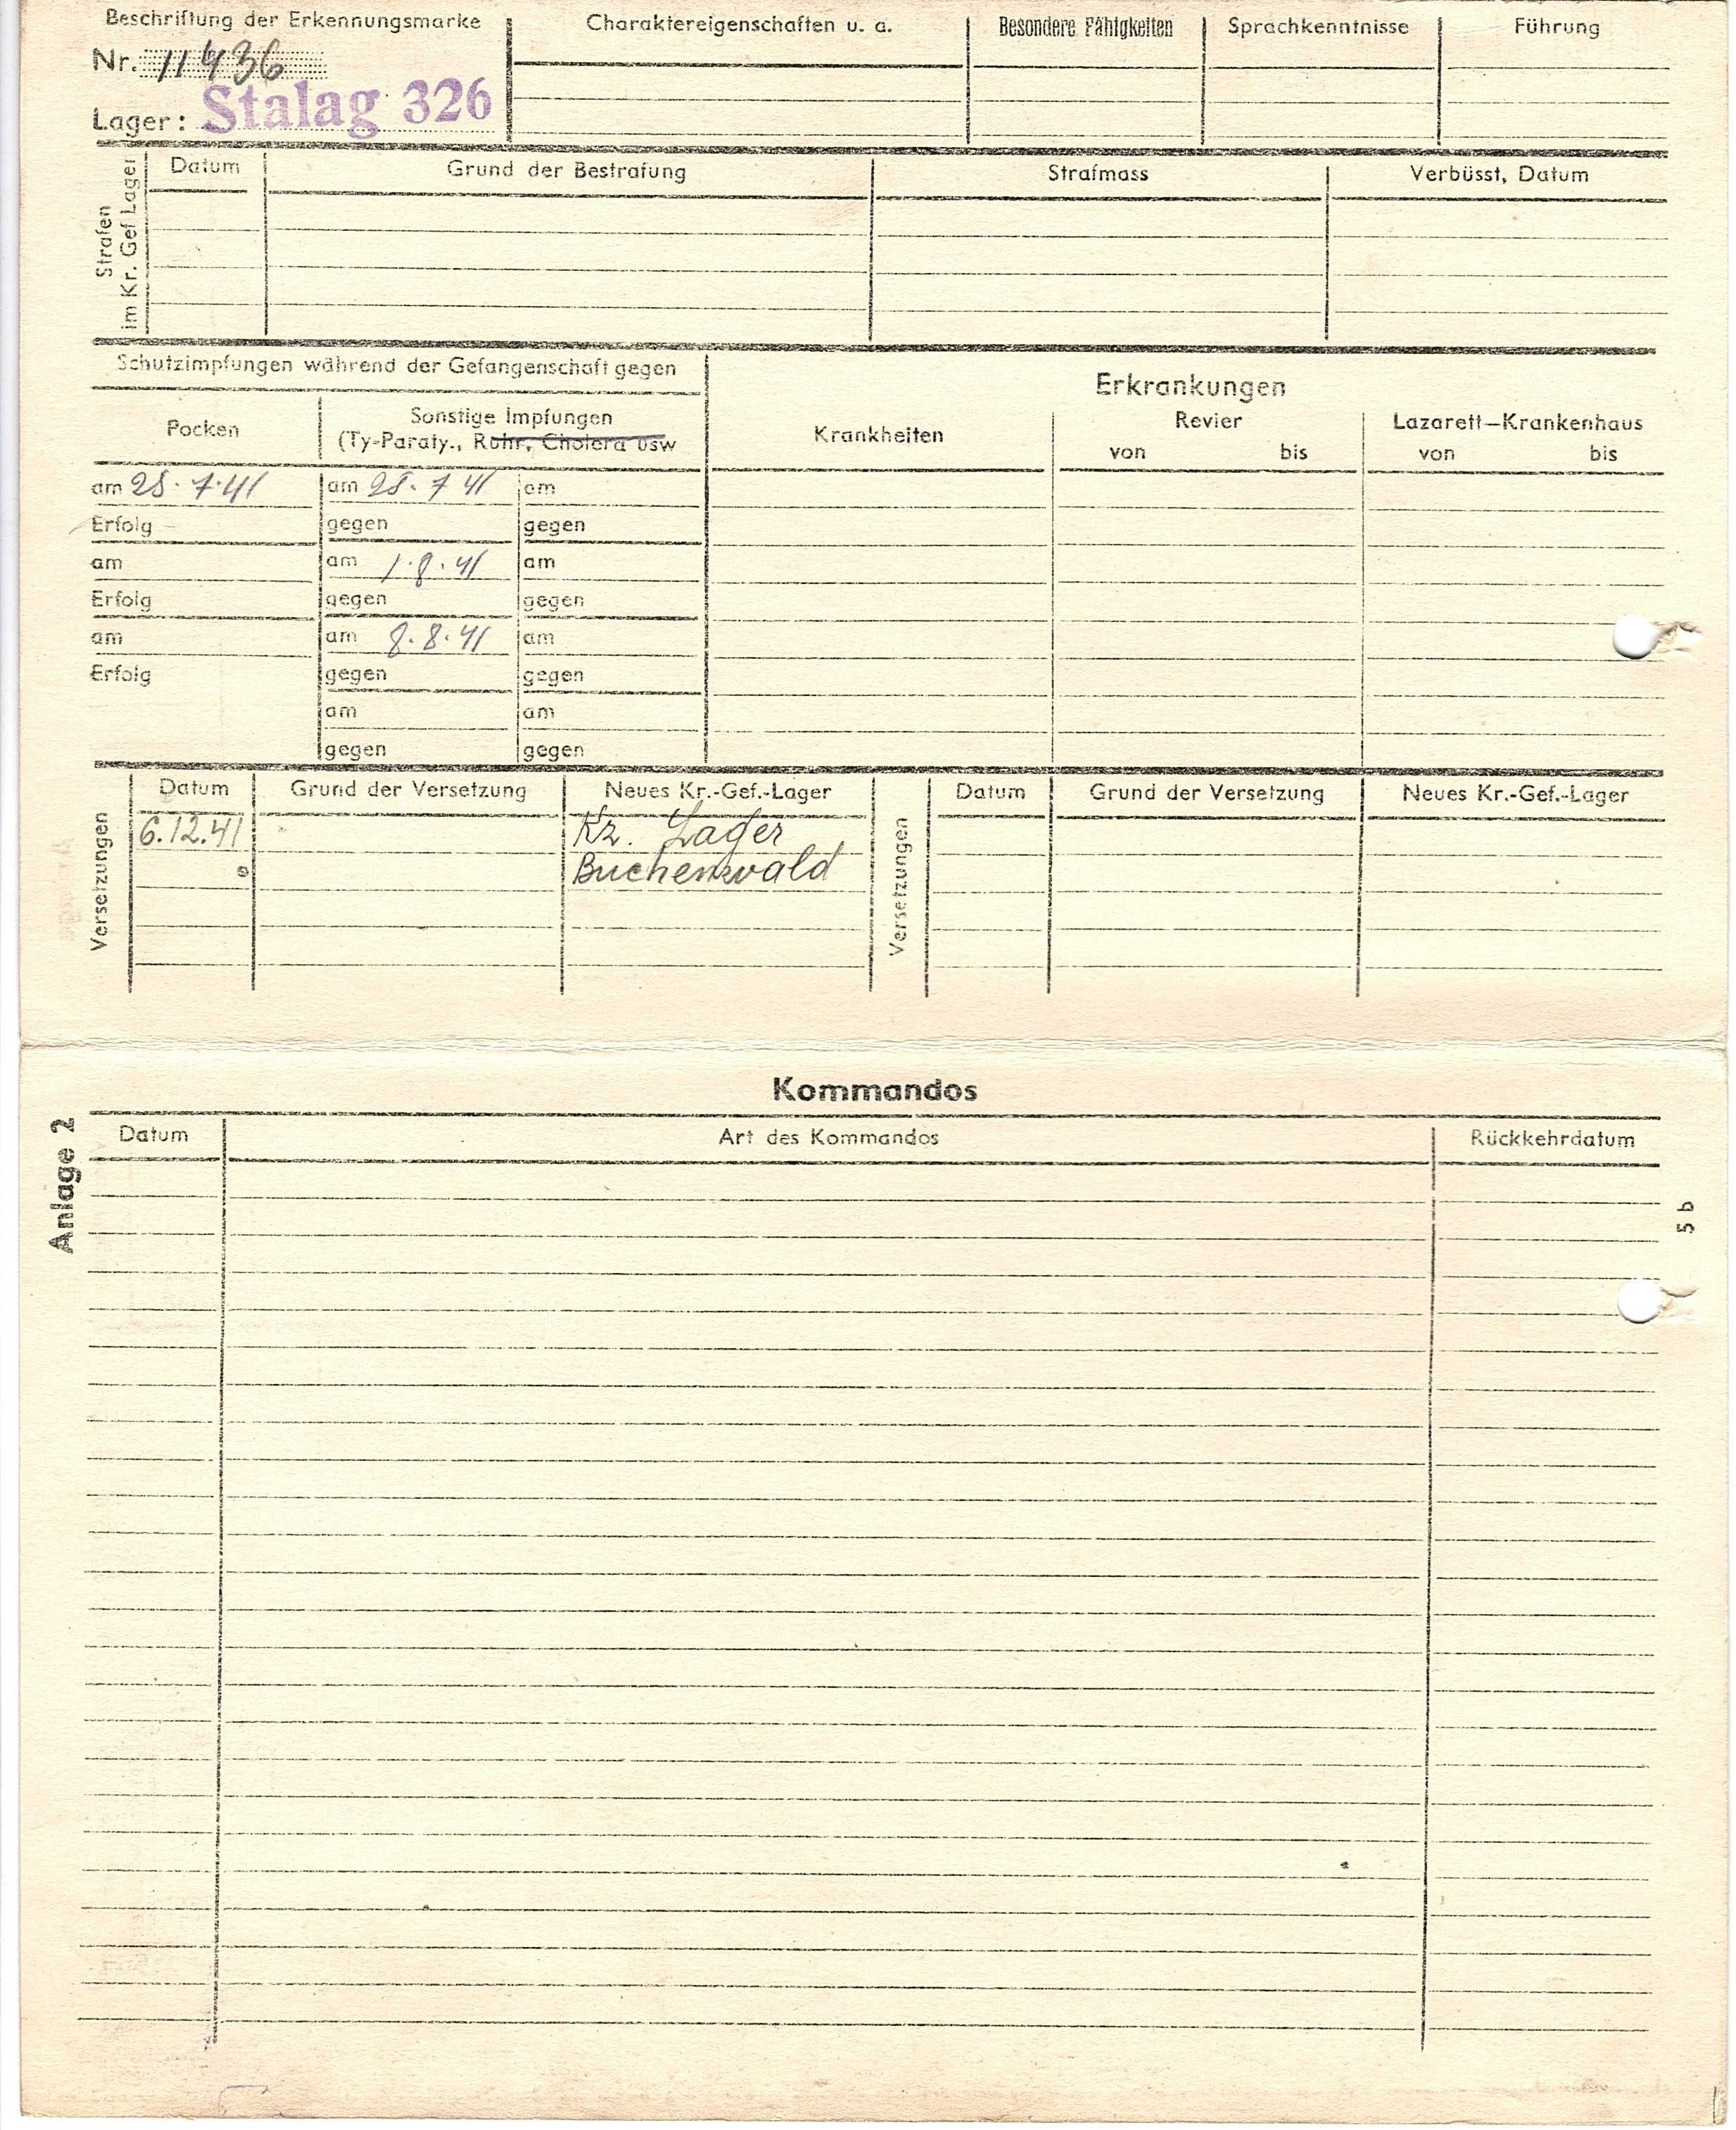 Beschriftung der Erkennungsmarke
Nr. 11436
Lager: Stalag 326
Charaktereigenschaften u. a.
Besondere Fähigkeiten
Sprachkenntnisse
Führung
Strafen
im Kr. Gef Lager
Datum
Grund der Bestrafung
Strafmass
Verbüsst, Datum
Schutzimpfungen während der Gefangenschaft gegen
Pocken
Sonstige Impfungen
(Ty-Paraty., Ruhr, Cholera usw
Erkrankungen
Krankheiten
Revier
von bis
Lazarett-Krankenhaus
von bis
am 28.7.41 am 28.7 41 am
Erfolg gegen gegen
am am 1.8.41 am
Erfolg gegen gegen
am am 8.8.41 am
Erfolg gegen gegen
am am
gegen gegen
Versetzungen
Datum Grund der Versetzung Neues Kr.-Gef.-Lager
6.12.41 Kz. Lager
Buchenwald
Versetzungen
Datum Grund der Versetzung Neues Kr.-Gef.-Lager
Kommandos
Anlage 2
Datum Art des Kommandos Rückkehrdatum
5 b